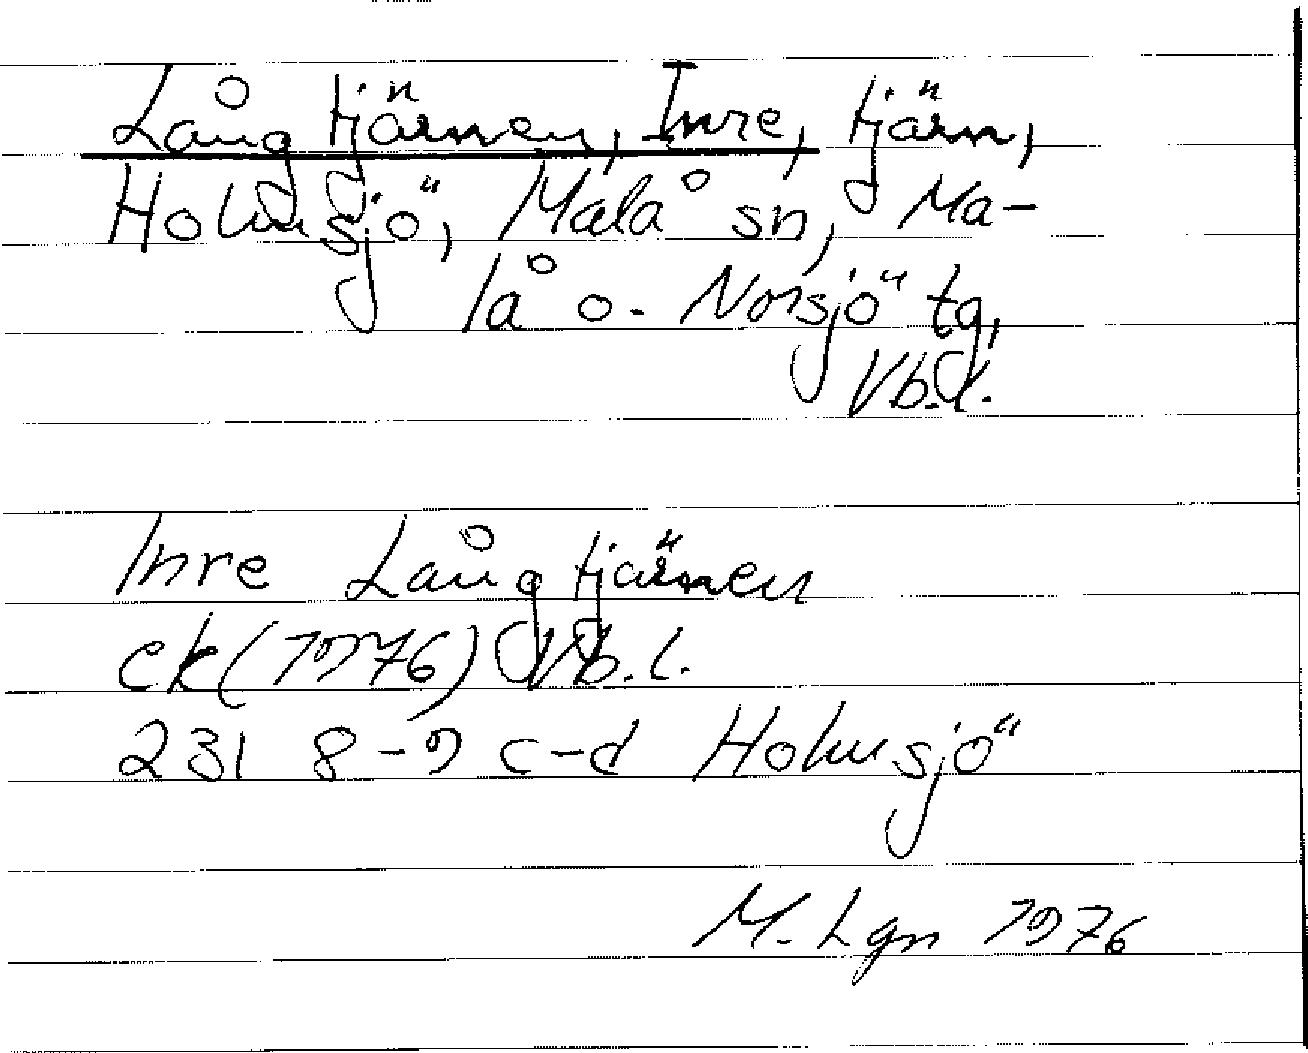 Långtjärnen, Inre, tjärn,
Holmsjö, Malå sn, Ma-
lå o. Norsjö tg,
Vb.l.
Inre Långtjärnen
ek (1976) Vb.l.
231 8-9 c-d Holmsjö
M. Lgn 1976